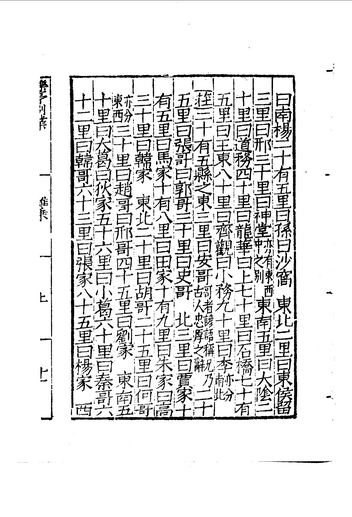 曰南楊二十有五里曰孫曰沙窩 東北一里曰東侯留
三里曰邢三十里曰神堂亦有東西中之別 東南五里曰大陰二
十里曰道務四十里曰龍華曰上七十里曰石橋七十有
五里曰王東八十里曰齊觀曰小務九十里曰李亦分南北
莊二十有五縣之東三里曰安哥 二十
五里曰張哥曰郭哥三十里曰史哥 北三里曰賈家十
有五里曰馬家十有八里曰田家十有九里曰朱家曰高
三十里曰韓家 東北二十里曰胡哥二十五里曰何哥
亦分東西三十里曰趙哥曰邢哥四十五里曰劉家 東南五
十里曰大葛曰狄家五十六里曰小葛六十里曰秦哥六
十二里曰韓哥六十三里曰張家八十五里曰楊家 西
上